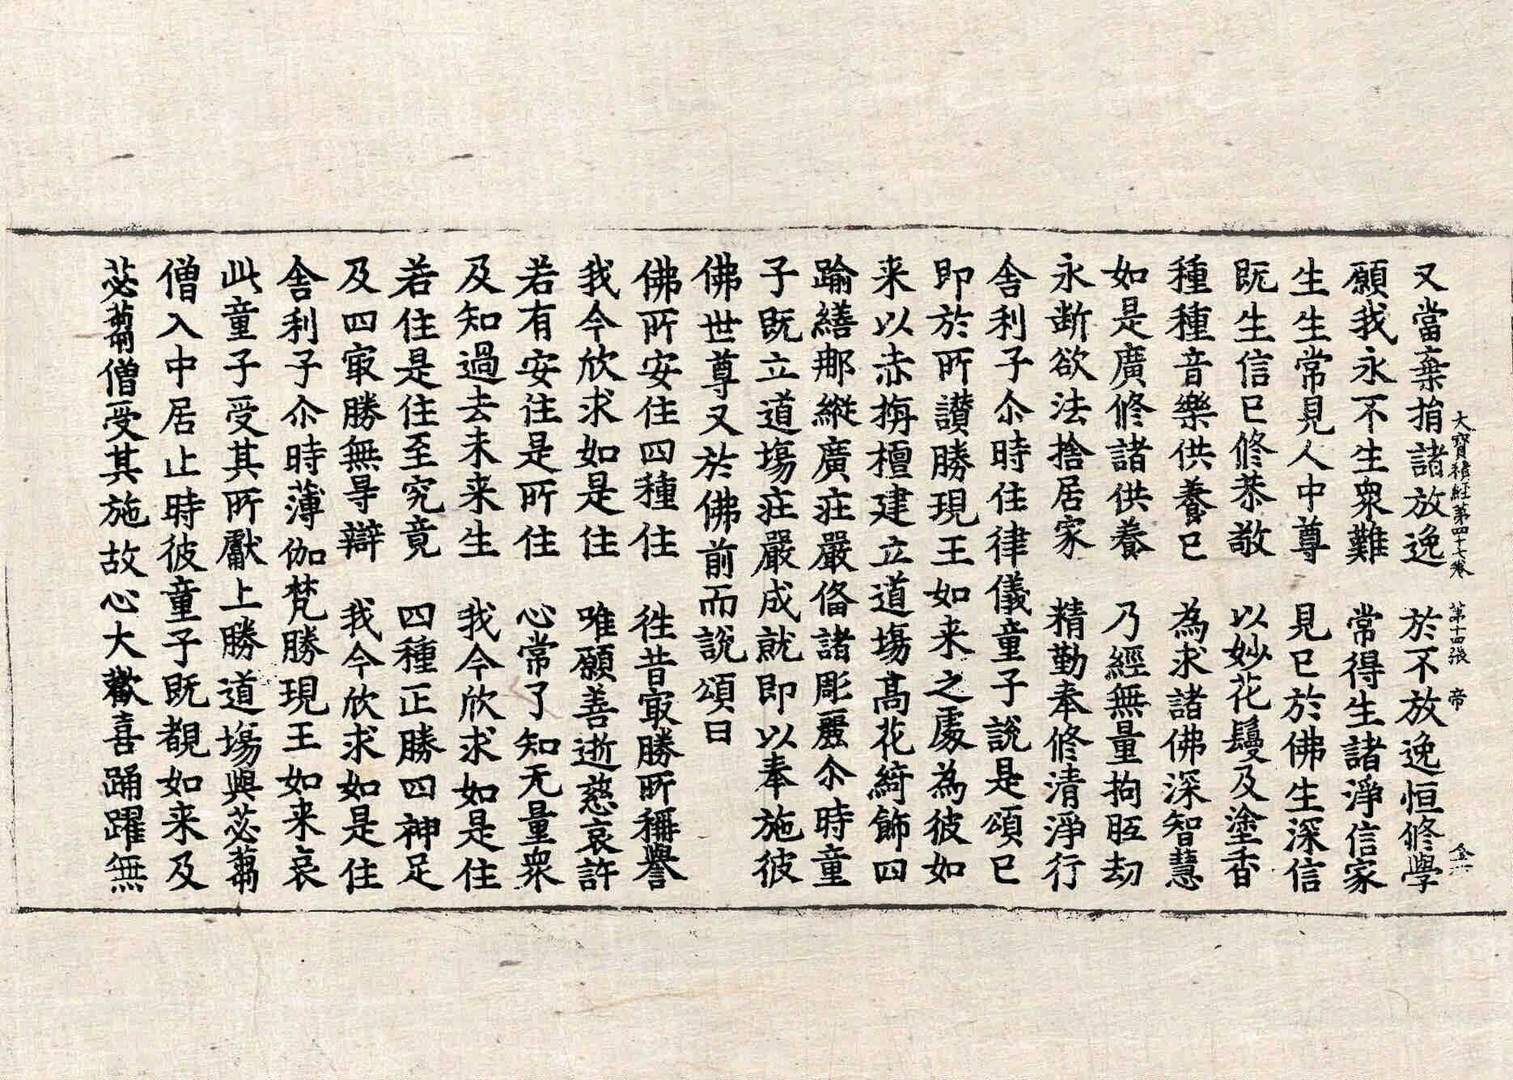 大寶積経第四十七卷 第十四張 帝
又當棄捨諸放逸 於不放逸恒修學
願我永不生衆難 常得生諸淨信家
生生常見人中尊 見已於佛生深信
既生信已修恭敬 以妙花鬘及塗香
種種音樂供養已 為求諸佛深智慧
如是廣修諸供養 乃經無量拘胝劫
永斷欲法捨居家 精勤奉修清淨行
舍利子尒時住律儀童子說是頌已
即於所讃勝現王如来之處為彼如
来以赤栴檀建立道場髙花綺飾四
踰繕那縱廣莊嚴俻諸彫麗尒時童
子既立道場莊嚴成就即以奉施彼
佛世尊又於佛前而說頌曰
佛所安住四種住 徃昔㝡勝所稱譽
我今欣求如是住 唯願善逝慈哀許
若有安住是所住 心常了知无量衆
及知過去未来生 我今欣求如是住
若住是住至究竟 四種正勝四神足
及四㝡勝無㝵辯 我今欣求如是住
舍利子尒時薄伽梵勝現王如来哀
此童子受其所獻上勝道場與苾蒭
僧入中居止時彼童子既覩如来及
苾蒭僧受其施故心大歡喜踊躍無